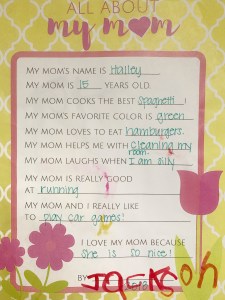 ALL ABOUT
my mom
MY MOM'S NAME IS Hailey
MY MOM IS 15 YEARS OLD.
MY MOM COOKS THE BEST Spaghetti!
MY MOM'S FAVORITE COLOR IS green
MY MOM LOVES TO EAT hamburgers.
MY MOM HELPS ME WITH cleaning my
room.
MY MOM LAUGHS WHEN I am silly
MY MOM IS REALLY GOOD
AT running
MY MOM AND I REALLY LIKE
TO play car games!
I LOVE MY MOM BECAUSE
She is so nice!
BY